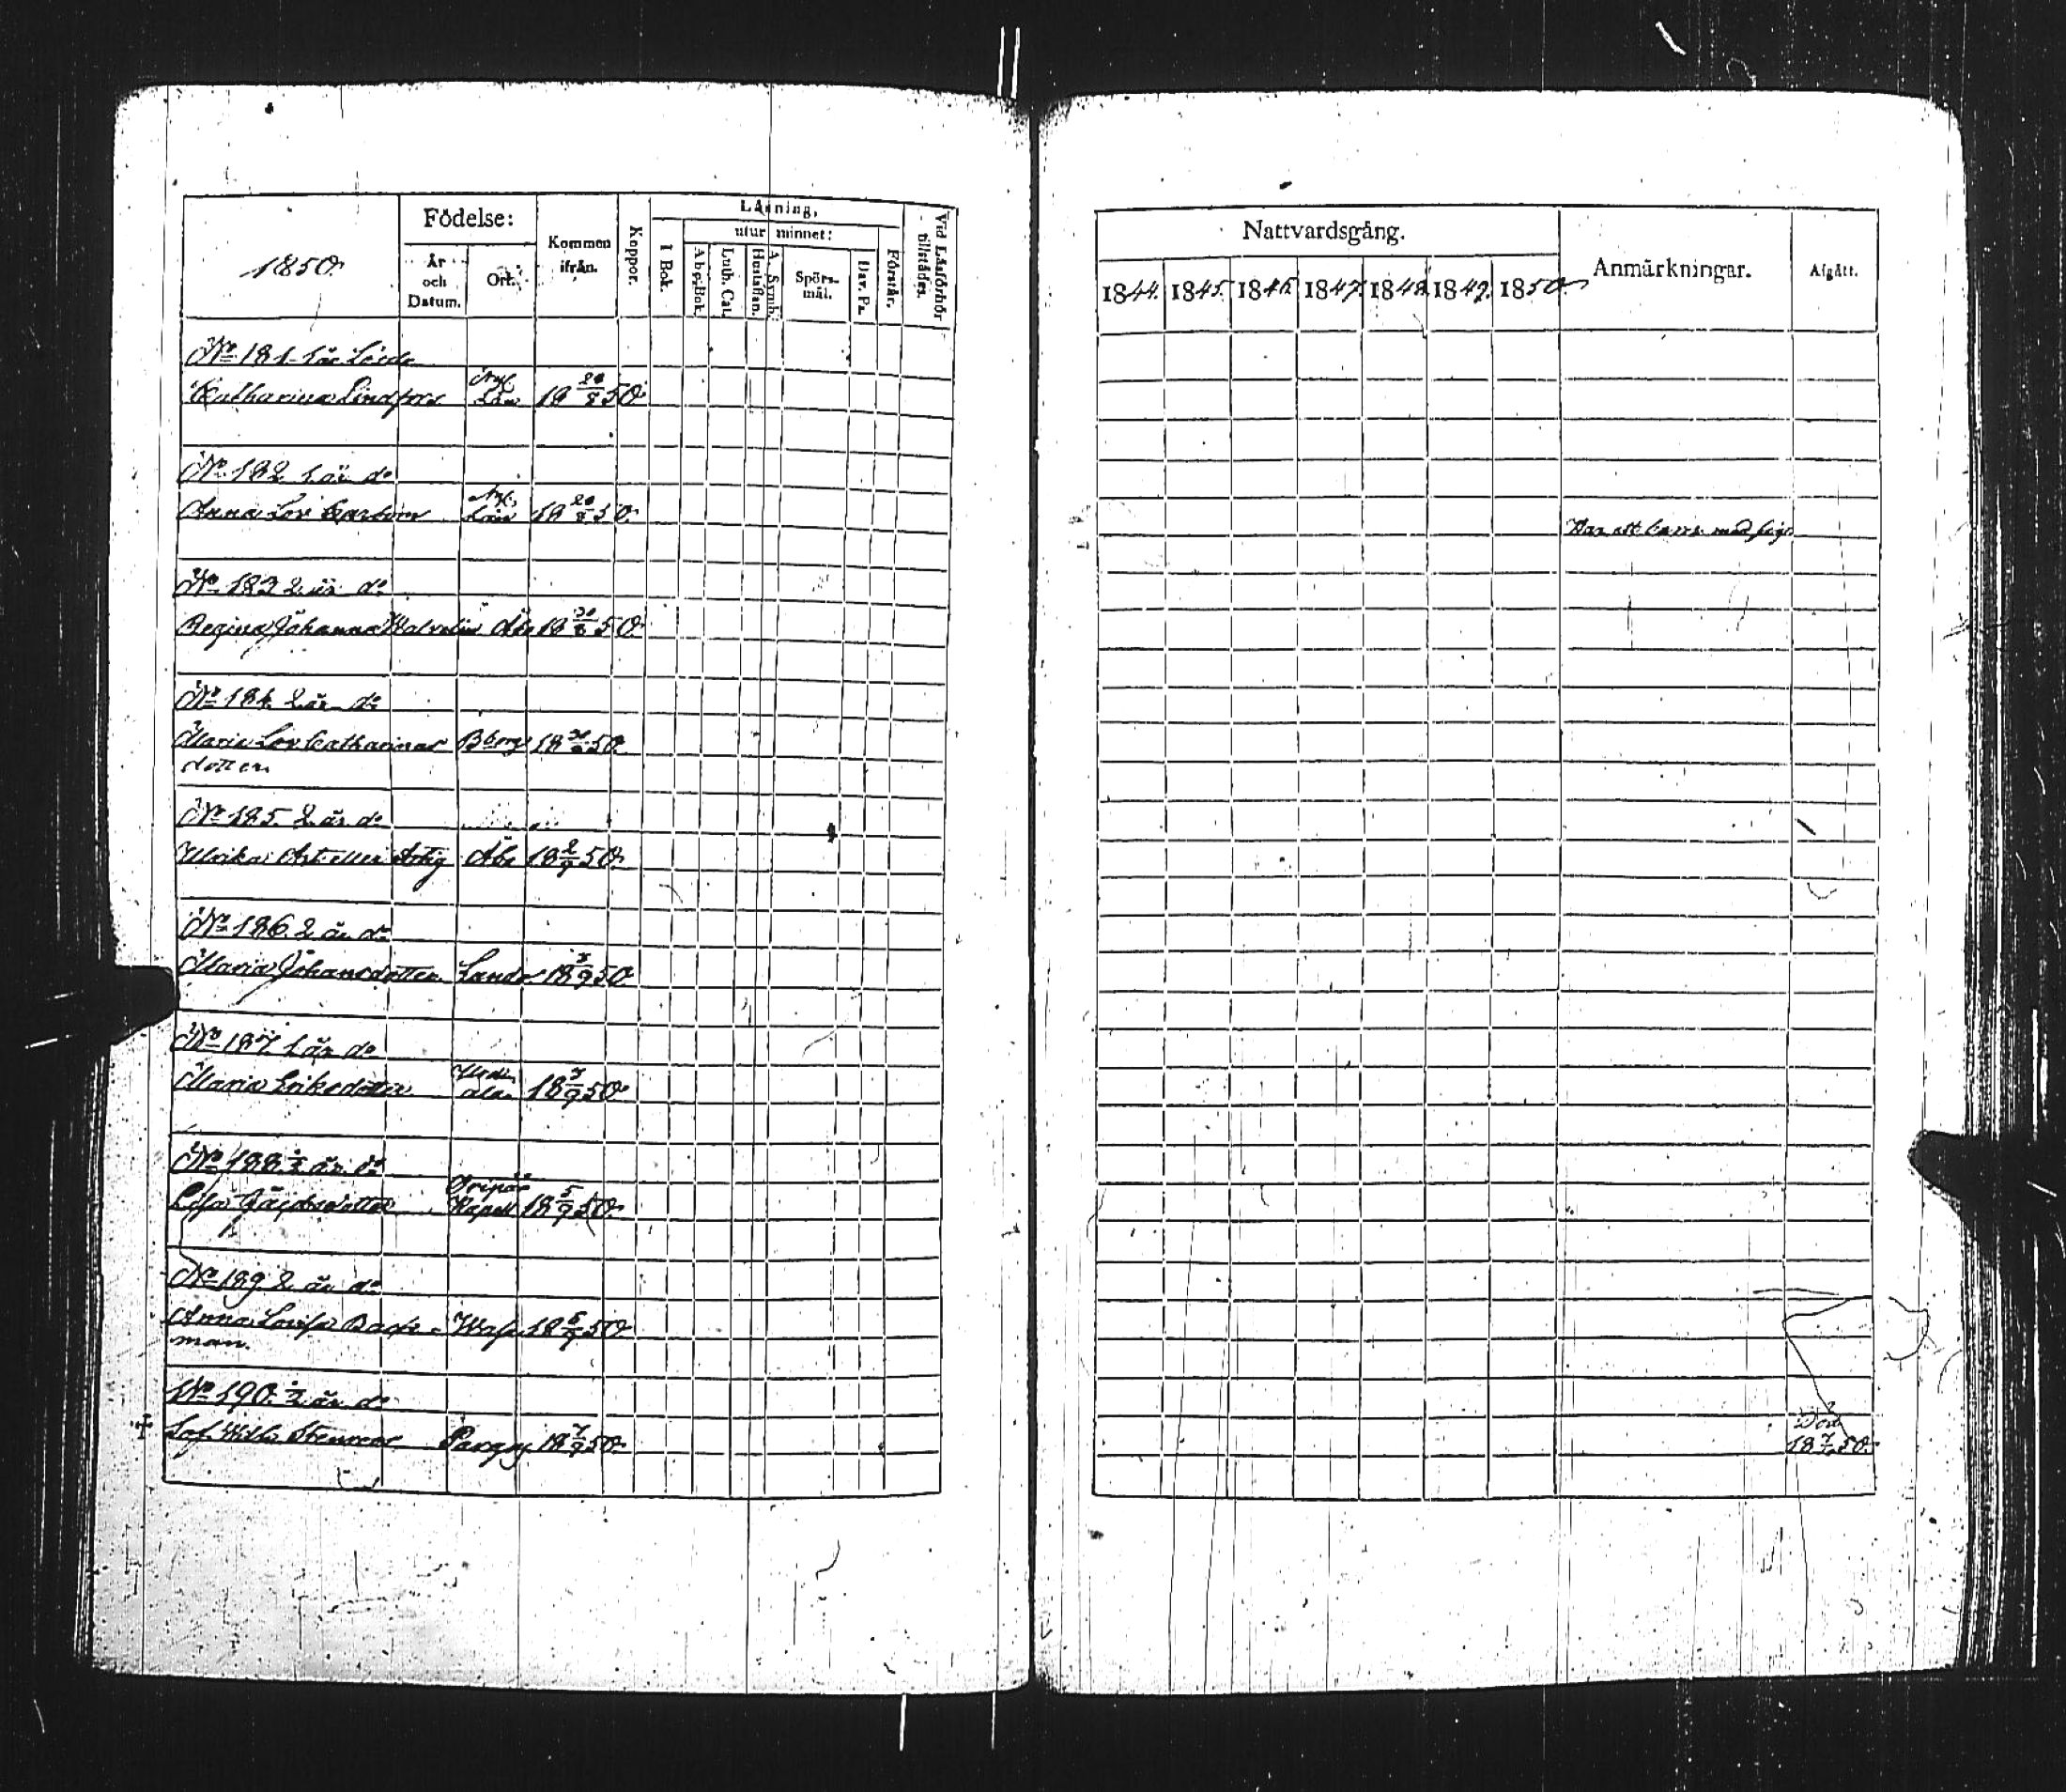 1850.
Födelse:
År och Datum.
Ort.
Kommen ifrån.
Koppor.
Läsning,
I Bok.
utur minnet:
Abc-Bok.
Luth. Cat.
Hustaflan.
A. Symb.
Spörsmål.
Dav. Ps.
Förstår.
Vid Läsförhör tillstädes.
No 181 1 år
Catharina Lindfors Nyl. Län 18 20/8 50.
No 182 1 år do
Anna Lov. Carlsom Nyl. Län 18 20/8 50.
No 183 2 år do
Regina Johanna Åbo 18 30/8 50.
No 184 2 år do
Maria Lov. Catharinas Bborg 18 30/8 50.
dotter
No 185. 2 år do
Ulrika eller Åbo 18 2/9 50.
No 186. 2 år do
Maria Johansdotter Lundo 18 3/9 50
No 187. 1 år do
Maria Eriksdotter 18 3/9 50.
No 188. 1/2 år do
Lisa Jacobsdotter Oripää Kapell 18 5/9 50.
No 189 2 år do
Anna Lovisa Back- Wasa 18 6/9 50
man.
No 190. 1/2 år do
Sof. Wilh. Pargas 18 7/9 50.
Nattvardsgång.
Anmärkningar.
Afgått.
1844. 1845. 1846. 1847. 1848. 1849. 1850.
Har ett barn med sig.
Död
18 7/9 50.